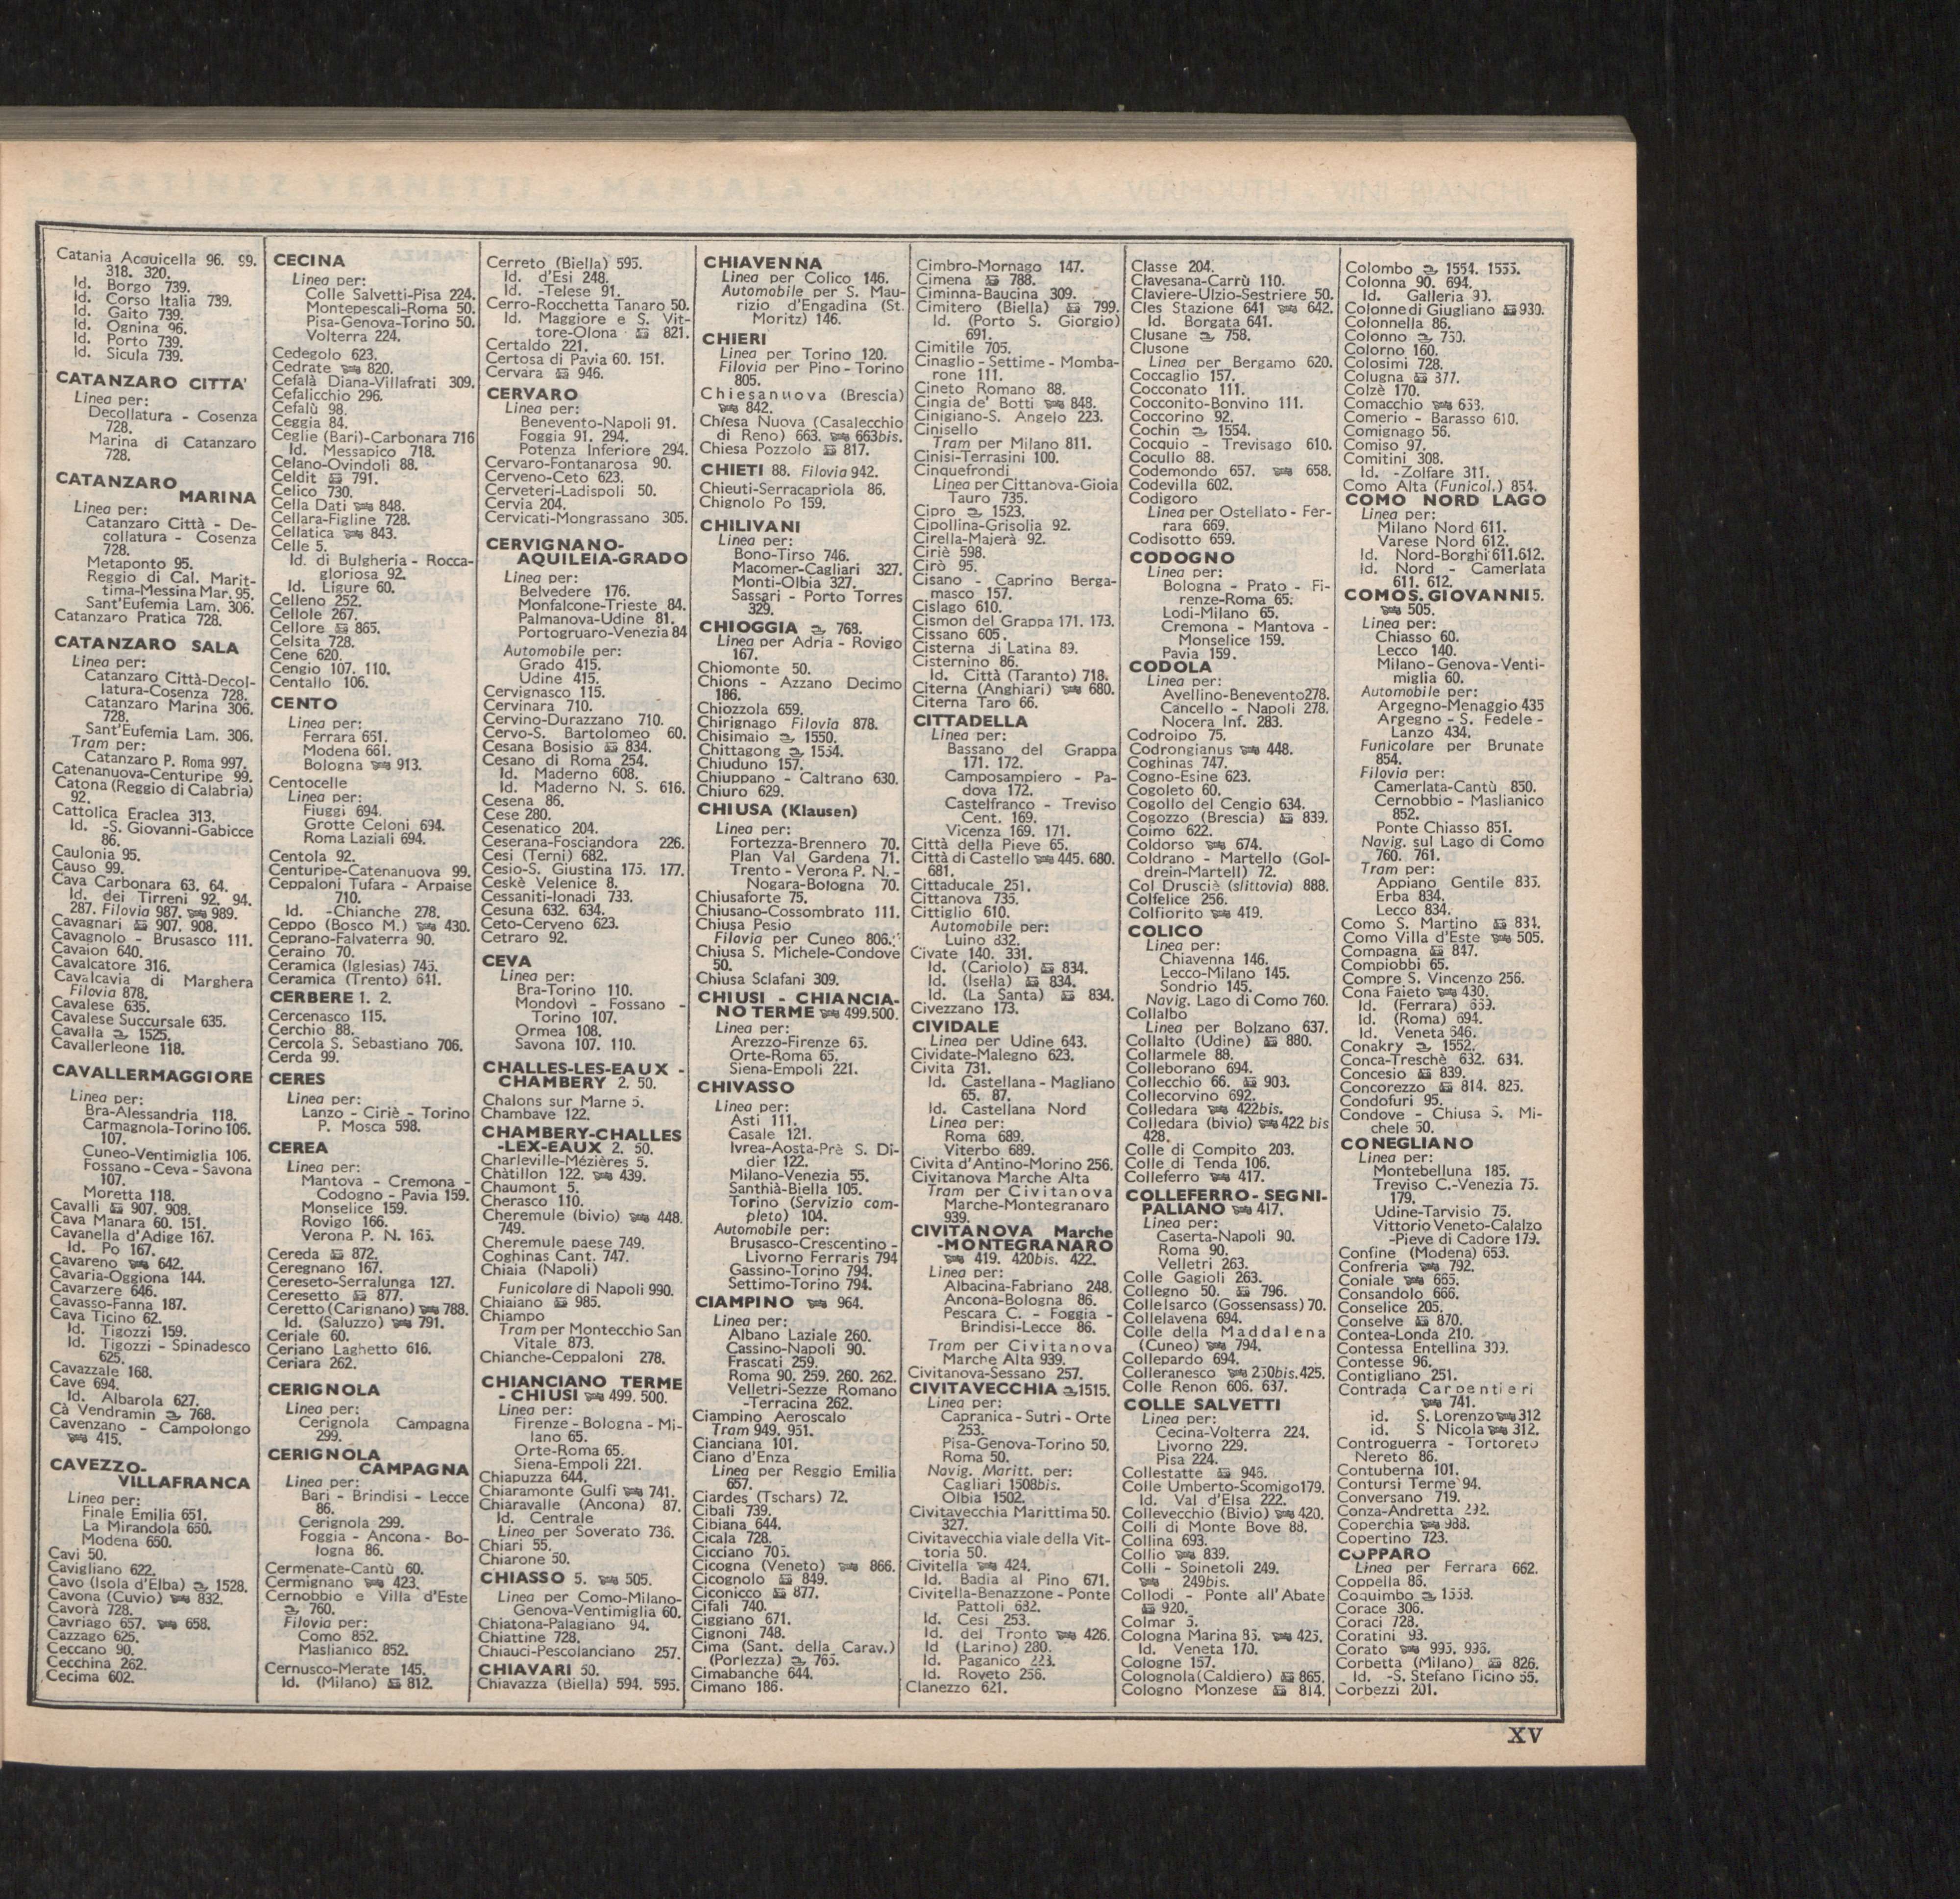 Catania Acquicella 96. 99.
318. 320.
Id. Borgo 739.
Id. Corso Italia 739.
Id. Gaito 739.
Id. Ognina 96.
Id. Porto 739.
Id. Sicula 739.
CATANZARO CITTA'
Linea per:
Decollatura - Cosenza
728.
Marina di Catanzaro
728.
CATANZARO
MARINA
Linea per:
Catanzaro Città - De-
collatura - Cosenza
728.
Metaponto 95.
Reggio di Cal. Marit-
tima-Messina Mar. 95.
Sant'Eufemia Lam. 306.
Catanzaro Pratica 728.
CATANZARO SALA
Linea per:
Catanzaro Città-Decol-
latura-Cosenza 728.
Catanzaro Marina 306.
728.
Sant'Eufemia Lam. 306.
Tram per:
Catanzaro P. Roma 997.
Catenanuova-Centuripe 99.
Catona (Reggio di Calabria)
92.
Cattolica Eraclea 313.
Id. -S. Giovanni-Gabicce
86.
Caulonia 95.
Causo 99.
Cava Carbonara 63. 64.
Id. dei Tirreni 92. 94.
287. Filovia 987. 989.
Cavagnari 907. 908.
Cavagnolo - Brusasco 111.
Cavaion 640.
Cavalcatore 316.
Cavalcavia di Marghera
Filovia 878.
Cavalese 635.
Cavalese Succursale 635.
Cavalla 1525.
Cavallerleone 118.
CAVALLERMAGGIORE
Linea per:
Bra-Alessandria 118.
Carmagnola-Torino 106.
107.
Cuneo-Ventimiglia 106.
Fossano - Ceva - Savona
107.
Moretta 118.
Cavalli 907. 908.
Cava Manara 60. 151.
Cavanella d'Adige 167.
Id. Po 167.
Cavareno 642.
Cavaria-Oggiona 144.
Cavarzere 646.
Cavasso-Fanna 187.
Cava Ticino 62.
Id. Tigozzi 159.
Id. Tigozzi - Spinadesco
625.
Cavazzale 168.
Cave 694.
Id. Albarola 627.
Cà Vendramin 768.
Cavenzano - Campolongo
415.
CAVEZZO-
VILLAFRANCA
Linea per:
Finale Emilia 651.
La Mirandola 650.
Modena 650.
Cavi 50.
Cavigliano 622.
Cavo (Isola d'Elba) 1528.
Cavona (Cuvio) 832.
Cavorà 728.
Cavriago 657. 658.
Cazzago 625.
Ceccano 90.
Cecchina 262.
Cecima 602.
CECINA
Linea per:
Colle Salvetti-Pisa 224.
Montepescali-Roma 50.
Pisa-Genova-Torino 50.
Volterra 224.
Cedegolo 623.
Cedrate 820.
Cefalà Diana-Villafrati 309.
Cefalicchio 296.
Cefalù 98.
Ceggia 84.
Ceglie (Bari)-Carbonara 716
Id. Messapico 718.
Celano-Ovindoli 88.
Celdit 791.
Celico 730.
Cella Dati 848.
Cellara-Figline 728.
Cellatica 843.
Celle 5.
Id. di Bulgheria - Rocca-
gloriosa 92.
Id. Ligure 60.
Celleno 252.
Cellole 267.
Cellore 865.
Celsita 728.
Cene 620.
Cengio 107. 110.
Centallo 106.
CENTO
Linea per:
Ferrara 661.
Modena 661.
Bologna 913.
Centocelle
Linea per:
Fiuggi 694.
Grotte Celoni 694.
Roma Laziali 694.
Centola 92.
Centuripe-Catenanuova 99.
Ceppaloni Tufara - Arpaise
710.
Id. -Chianche 278.
Ceppo (Bosco M.) 430.
Ceprano-Falvaterra 90.
Ceraino 70.
Ceramica (Iglesias) 745.
Ceramica (Trento) 641.
CERBERE 1. 2.
Cercenasco 115.
Cerchio 88.
Cercola S. Sebastiano 706.
Cerda 99.
CERES
Linea per:
Lanzo - Ciriè - Torino
P. Mosca 598.
CEREA
Linea per:
Mantova - Cremona -
Codogno - Pavia 159.
Monselice 159.
Rovigo 166.
Verona P. N. 165.
Cereda 872.
Ceregnano 167.
Cereseto-Serralunga 127.
Ceresetto 877.
Ceretto (Carignano) 788.
Id. (Saluzzo) 791.
Ceriale 60.
Ceriano Laghetto 616.
Ceriara 262.
CERIGNOLA
Linea per:
Cerignola Campagna
299.
CERIGNOLA
CAMPAGNA
Linea per:
Bari - Brindisi - Lecce
86.
Cerignola 299.
Foggia - Ancona - Bo-
logna 86.
Cermenate-Cantù 60.
Cermignano 423.
Cernobbio e Villa d'Este
760.
Filovia per:
Como 852.
Maslianico 852.
Cernusco-Merate 145.
Id. (Milano) 812.
Cerreto (Biella) 595.
Id. d'Esi 248.
Id. -Telese 91.
Cerro-Rocchetta Tanaro 50.
Id. Maggiore e S. Vit-
tore-Olona 821.
Certaldo 221.
Certosa di Pavia 60. 151.
Cervara 946.
CERVARO
Linea per:
Benevento-Napoli 91.
Foggia 91. 294.
Potenza Inferiore 294.
Cervaro-Fontanarosa 90.
Cerveno-Ceto 623.
Cerveteri-Ladispoli 50.
Cervia 204.
Cervicati-Mongrassano 305.
CERVIGNANO-
AQUILEIA-GRADO
Linea per:
Belvedere 176.
Monfalcone-Trieste 84.
Palmanova-Udine 81.
Portogruaro-Venezia 84
Automobile per:
Grado 415.
Udine 415.
Cervignasco 115.
Cervinara 710.
Cervino-Durazzano 710.
Cervo-S. Bartolomeo 60.
Cesana Bosisio 834.
Cesano di Roma 254.
Id. Maderno 608.
Id. Maderno N. S. 616.
Cesena 86.
Cese 280.
Cesenatico 204.
Ceserana-Fosciandora 226.
Cesi (Terni) 682.
Cesio-S. Giustina 175. 177.
Ceskè Velenice 8.
Cessaniti-Ionadi 733.
Cesuna 632. 634.
Ceto-Cerveno 623.
Cetraro 92.
CEVA
Linea per:
Bra-Torino 110.
Mondovì - Fossano -
Torino 107.
Ormea 108.
Savona 107. 110.
CHALLES-LES-EAUX -
CHAMBERY 2. 50.
Chalons sur Marne 5.
Chambave 122.
CHAMBERY-CHALLES
-LEX-EAUX 2. 50.
Charleville-Mézières 5.
Châtillon 122. 439.
Chaumont 5.
Cherasco 110.
Cheremule (bivio) 448.
749.
Cheremule paese 749.
Coghinas Cant. 747.
Chiaia (Napoli)
Funicolare di Napoli 990.
Chiaiano 985.
Chiampo
Tram per Montecchio San
Vitale 873.
Chianche-Ceppaloni 278.
CHIANCIANO TERME
- CHIUSI 499. 500.
Linea per:
Firenze - Bologna - Mi-
lano 65.
Orte-Roma 65.
Siena-Empoli 221.
Chiapuzza 644.
Chiaramonte Gulfi 741.
Chiaravalle (Ancona) 87.
Id. Centrale
Linea per Soverato 736.
Chiari 55.
Chiarone 50.
CHIASSO 5. 505.
Linea per Como-Milano-
Genova-Ventimiglia 60.
Chiatona-Palagiano 94.
Chiattine 728.
Chiauci-Pescolanciano 257.
CHIAVARI 50.
Chiavazza (Biella) 594. 595.
CHIAVENNA
Linea per Colico 146.
Automobile per S. Mau-
rizio d'Engadina (St.
Moritz) 146.
CHIERI
Linea per Torino 120.
Filovia per Pino - Torino
805.
Chiesanuova (Brescia)
842.
Chiesa Nuova (Casalecchio
di Reno) 663. 663bis.
Chiesa Pozzolo 817.
CHIETI 88. Filovia 942.
Chieuti-Serracapriola 86.
Chignolo Po 159.
CHILIVANI
Linea per:
Bono-Tirso 746.
Macomer-Cagliari 327.
Monti-Olbia 327.
Sassari - Porto Torres
329.
CHIOGGIA 768.
Linea per Adria - Rovigo
167.
Chiomonte 50.
Chions - Azzano Decimo
186.
Chiozzola 659.
Chirignago Filovia 878.
Chisimaio 1550.
Chittagong 1554.
Chiuduno 157.
Chiuppano - Caltrano 630.
Chiuro 629.
CHIUSA (Klausen)
Linea per:
Fortezza-Brennero 70.
Plan Val Gardena 71.
Trento - Verona P. N. -
Nogara-Bologna 70.
Chiusaforte 75.
Chiusano-Cossombrato 111.
Chiusa Pesio
Filovia per Cuneo 806.
Chiusa S. Michele-Condove
50.
Chiusa Sclafani 309.
CHIUSI - CHIANCIA-
NO TERME 499.500.
Linea per:
Arezzo-Firenze 65.
Orte-Roma 65.
Siena-Empoli 221.
CHIVASSO
Linea per:
Asti 111.
Casale 121.
Ivrea-Aosta-Prè S. Di-
dier 122.
Milano-Venezia 55.
Santhià-Biella 105.
Torino (Servizio com-
pleto) 104.
Automobile per:
Brusasco-Crescentino -
Livorno Ferraris 794
Gassino-Torino 794.
Settimo-Torino 794.
CIAMPINO 964.
Linea per:
Albano Laziale 260.
Cassino-Napoli 90.
Frascati 259.
Roma 90. 259. 260. 262.
Velletri-Sezze Romano
-Terracina 262.
Ciampino Aeroscalo
Tram 949. 951.
Cianciana 101.
Ciano d'Enza
Linea per Reggio Emilia
657.
Ciardes (Tschars) 72.
Cibali 739.
Cibiana 644.
Cicala 728.
Cicciano 705.
Cicogna (Veneto) 866.
Cicognolo 849.
Ciconicco 877.
Cifali 740.
Ciggiano 671.
Cignoni 748.
Cima (Sant. della Carav.)
(Porlezza) 765.
Cimabanche 644.
Cimano 186.
Cimbro-Mornago 147.
Cimena 788.
Ciminna-Baucina 309.
Cimitero (Biella) 799.
Id. (Porto S. Giorgio)
691.
Cimitile 705.
Cinaglio - Settime - Momba-
rone 111.
Cineto Romano 88.
Cingia de' Botti 848.
Cinigiano-S. Angelo 223.
Cinisello
Tram per Milano 811.
Cinisi-Terrasini 100.
Cinquefrondi
Linea per Cittanova-Gioia
Tauro 735.
Cipro 1523.
Cipollina-Grisolia 92.
Cirella-Majerà 92.
Ciriè 598.
Cirò 95.
Cisano - Caprino Berga-
masco 157.
Cislago 610.
Cismon del Grappa 171. 173.
Cissano 605.
Cisterna di Latina 89.
Cisternino 86.
Id. Città (Taranto) 718.
Citerna (Anghiari) 680.
Citerna Taro 66.
CITTADELLA
Linea per:
Bassano del Grappa
171. 172.
Camposampiero - Pa-
dova 172.
Castelfranco - Treviso
Cent. 169.
Vicenza 169. 171.
Città della Pieve 65.
Città di Castello 445. 680.
681.
Cittaducale 251.
Cittanova 735.
Cittiglio 610.
Automobile per:
Luino 832.
Civate 140. 331.
Id. (Cariolo) 834.
Id. (Isella) 834.
Id. (La Santa) 834.
Civezzano 173.
CIVIDALE
Linea per Udine 643.
Cividate-Malegno 623.
Civita 731.
Id. Castellana - Magliano
65. 87.
Id. Castellana Nord
Linea per:
Roma 689.
Viterbo 689.
Civita d'Antino-Morino 256.
Civitanova Marche Alta
Tram per Civitanova
Marche-Montegranaro
939.
CIVITANOVA Marche
-MONTEGRANARO
419. 420bis. 422.
Linea per:
Albacina-Fabriano 248.
Ancona-Bologna 86.
Pescara C. - Foggia -
Brindisi-Lecce 86.
Tram per Civitanova
Marche Alta 939.
Civitanova-Sessano 257.
CIVITAVECCHIA 1515.
Linea per:
Capranica - Sutri - Orte
253.
Pisa-Genova-Torino 50.
Roma 50.
Navig. Maritt. per:
Cagliari 1508bis.
Olbia 1502.
Civitavecchia Marittima 50.
327.
Civitavecchia viale della Vit-
toria 50.
Civitella 424.
Id. Badia al Pino 671.
Civitella-Benazzone - Ponte
Pattoli 682.
Id. Cesi 253.
Id. del Tronto 426.
Id (Larino) 280.
Id. Paganico 223.
Id. Roveto 256.
Clanezzo 621.
Classe 204.
Clavesana-Carrù 110.
Claviere-Ulzio-Sestriere 50.
Cles Stazione 641 642.
Id. Borgata 641.
Clusane 758.
Clusone
Linea per Bergamo 620.
Coccaglio 157.
Cocconato 111.
Cocconito-Bonvino 111.
Coccorino 92.
Cochin 1554.
Cocquio - Trevisago 610.
Cocullo 88.
Codemondo 657. 658.
Codevilla 602.
Codigoro
Linea per Ostellato - Fer-
rara 669.
Codisotto 659.
CODOGNO
Linea per:
Bologna - Prato - Fi-
renze-Roma 65.
Lodi-Milano 65.
Cremona - Mantova -
Monselice 159.
Pavia 159.
CODOLA
Linea per:
Avellino-Benevento278.
Cancello - Napoli 278.
Nocera Inf. 283.
Codroipo 75.
Codrongianus 448.
Coghinas 747.
Cogno-Esine 623.
Cogoleto 60.
Cogollo del Cengio 634.
Cogozzo (Brescia) 839.
Coimo 622.
Coldorso 674.
Coldrano - Martello (Gol-
drein-Martell) 72.
Col Drusciè (slittovia) 888.
Colfelice 256.
Colfiorito 419.
COLICO
Linea per:
Chiavenna 146.
Lecco-Milano 145.
Sondrio 145.
Navig. Lago di Como 760.
Collalbo
Linea per Bolzano 637.
Collalto (Udine) 880.
Collarmele 88.
Colleborano 694.
Collecchio 66. 903.
Collecorvino 692.
Colledara 422bis.
Colledara (bivio) 422 bis
428.
Colle di Compito 203.
Colle di Tenda 106.
Colleferro 417.
COLLEFERRO - SEGNI-
PALIANO 417.
Linea per:
Caserta-Napoli 90.
Roma 90.
Velletri 263.
Colle Gagioli 263.
Collegno 50. 796.
Collelsarco (Gossensass) 70.
Collelavena 694.
Colle della Maddalena
(Cuneo) 794.
Collepardo 694.
Colleranesco 250bis.425.
Colle Renon 606. 637.
COLLE SALVETTI
Linea per:
Cecina-Volterra 224.
Livorno 229.
Pisa 224.
Collestatte 946.
Colle Umberto-Scomigo179.
Id. Val d'Elsa 222.
Collevecchio (Bivio) 420.
Colli di Monte Bove 88.
Collina 693.
Collio 839.
Colli - Spinetoli 249.
249bis.
Collodi - Ponte all'Abate
920.
Colmar 5.
Cologna Marina 86. 425.
Id. Veneta 170.
Cologne 157.
Colognola(Caldiero) 865.
Cologno Monzese 814.
Colombo 1554. 1555.
Colonna 90. 694.
Id. Galleria 90.
Colonne di Giugliano 930.
Colonnella 86.
Colonno 760.
Colorno 160.
Colosimi 728.
Colugna 877.
Colzè 170.
Comacchio 653.
Comerio - Barasso 610.
Comignago 56.
Comiso 97.
Comitini 308.
Id. -Zolfare 311.
Como Alta (Funicol.) 854.
COMO NORD LAGO
Linea per:
Milano Nord 611.
Varese Nord 612.
Id. Nord-Borghi 611.612.
Id. Nord - Camerlata
611. 612.
COMO S. GIOVANNI 5.
505.
Linea per:
Chiasso 60.
Lecco 140.
Milano - Genova - Venti-
miglia 60.
Automobile per:
Argegno-Menaggio 435
Argegno - S. Fedele -
Lanzo 434.
Funicolare per Brunate
854.
Filovia per:
Camerlata-Cantù 850.
Cernobbio - Maslianico
852.
Ponte Chiasso 851.
Navig. sul Lago di Como
760. 761.
Tram per:
Appiano Gentile 835.
Erba 834.
Lecco 834.
Como S. Martino 834.
Como Villa d'Este 505.
Compagna 847.
Compiobbi 65.
Compre S. Vincenzo 256.
Cona Faieto 430.
Id. (Ferrara) 659.
Id. (Roma) 694.
Id. Veneta 646.
Conakry 1552.
Conca-Treschè 632. 634.
Concesio 839.
Concorezzo 814. 825.
Condofuri 95.
Condove - Chiusa S. Mi-
chele 50.
CONEGLIANO
Linea per:
Montebelluna 185.
Treviso C.-Venezia 75.
179.
Udine-Tarvisio 75.
Vittorio Veneto-Calalzo
-Pieve di Cadore 179.
Confine (Modena) 653.
Confreria 792.
Coniale 665.
Consandolo 666.
Conselice 205.
Conselve 870.
Contea-Londa 210.
Contessa Entellina 309.
Contesse 96.
Contigliano 251.
Contrada Carpentieri
741.
id. S. Lorenzo 312
id. S Nicola 312.
Controguerra - Tortoreto
Nereto 86.
Contuberna 101.
Contursi Terme 94.
Conversano 719.
Conza-Andretta 292.
Coperchia 988.
Copertino 723.
COPPARO
Linea per Ferrara 662.
Coppella 86.
Coquimbo 1558.
Corace 306.
Coraci 728.
Coratini 93.
Corato 995. 996.
Corbetta (Milano) 826.
Id. -S. Stefano Ticino 55.
Corbezzi 201.
XV